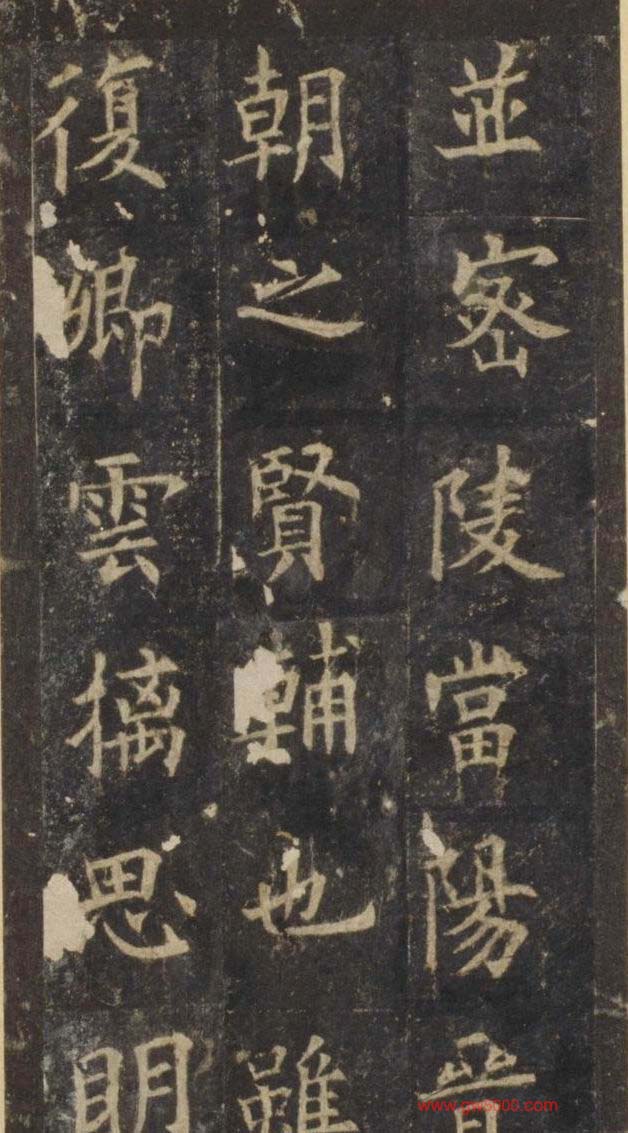 並密陵當陽晋
朝之賢輔也雖
復卿雲摛思明
www.gw5000.com